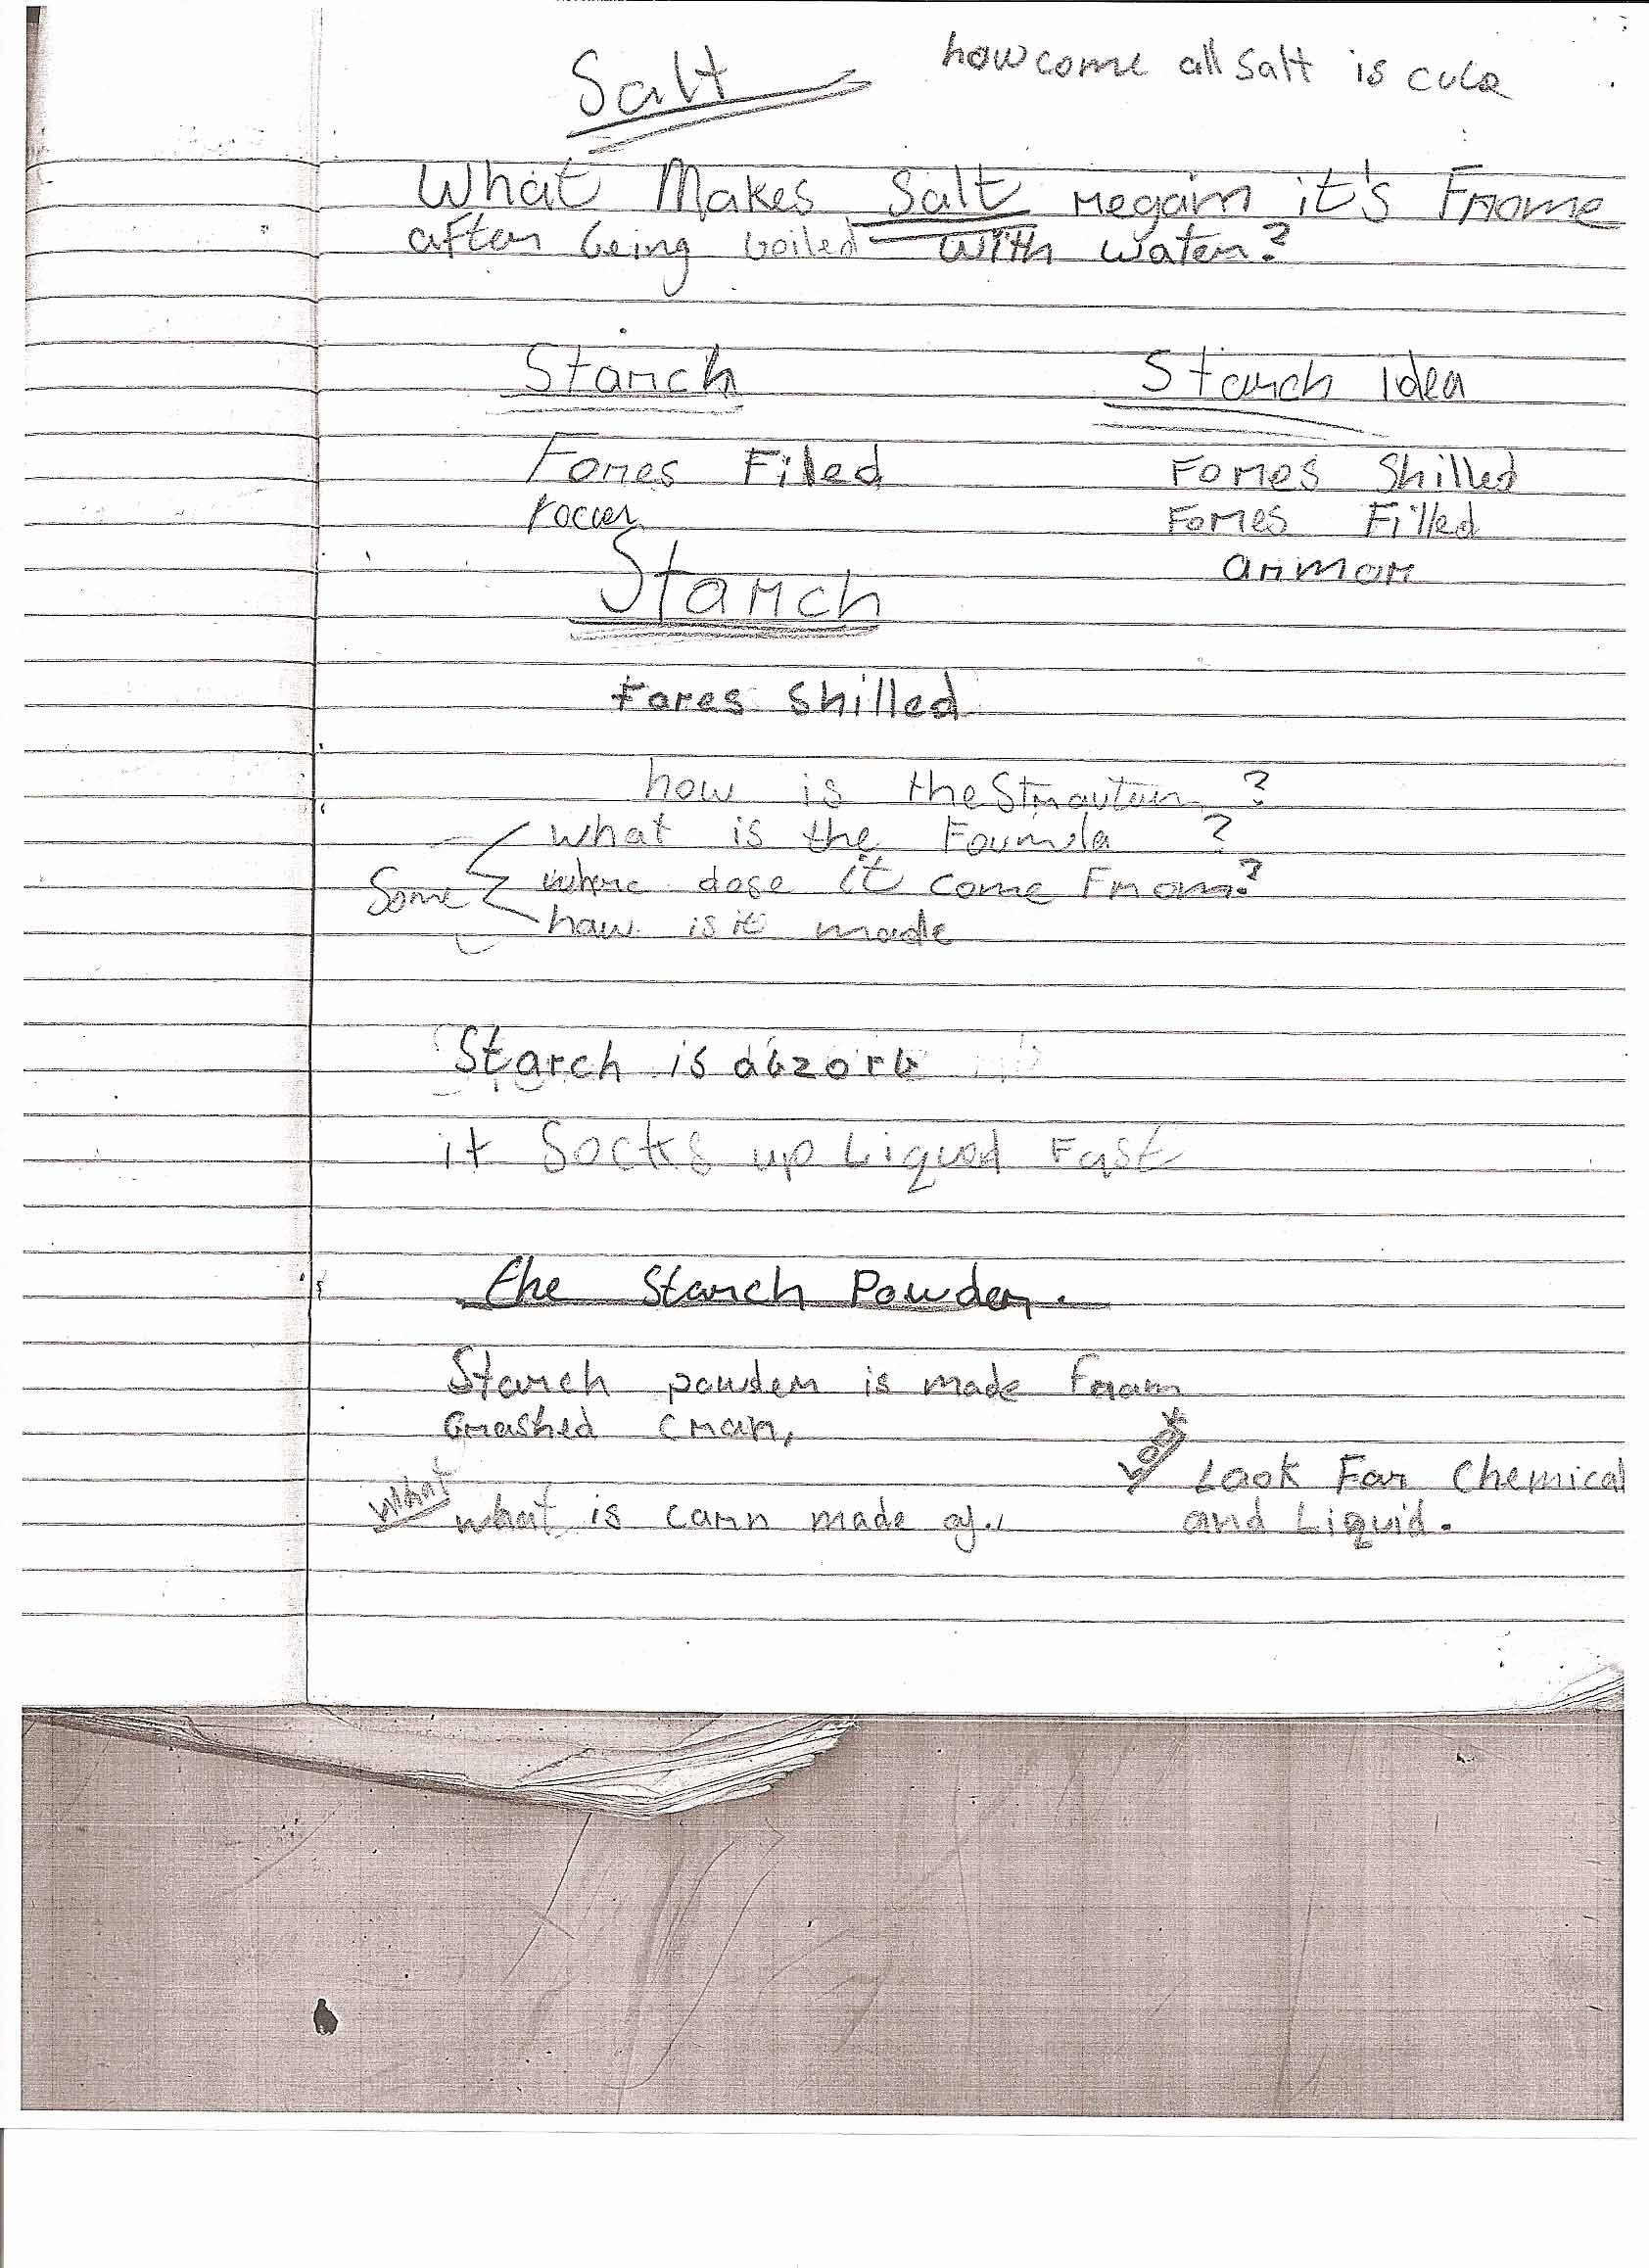 Salt
how come all Salt is
What Makes Salt regain it's Frome
after being boiled with water?
Starch
Starch Idea
Forces Filed
Forces Shilled
Forces Filled
armor
Starch
Fores Shilled
how is the ?
what is the Fourmula ?
where dose it come From?
Some
how is it made
Starch is abzorb
it Socks up Liquod Fast
the Starch Powder.
Starch powder is made From
Crashed
LOOK
Look For Chemical
and Liquid.
What
what is corn made of.